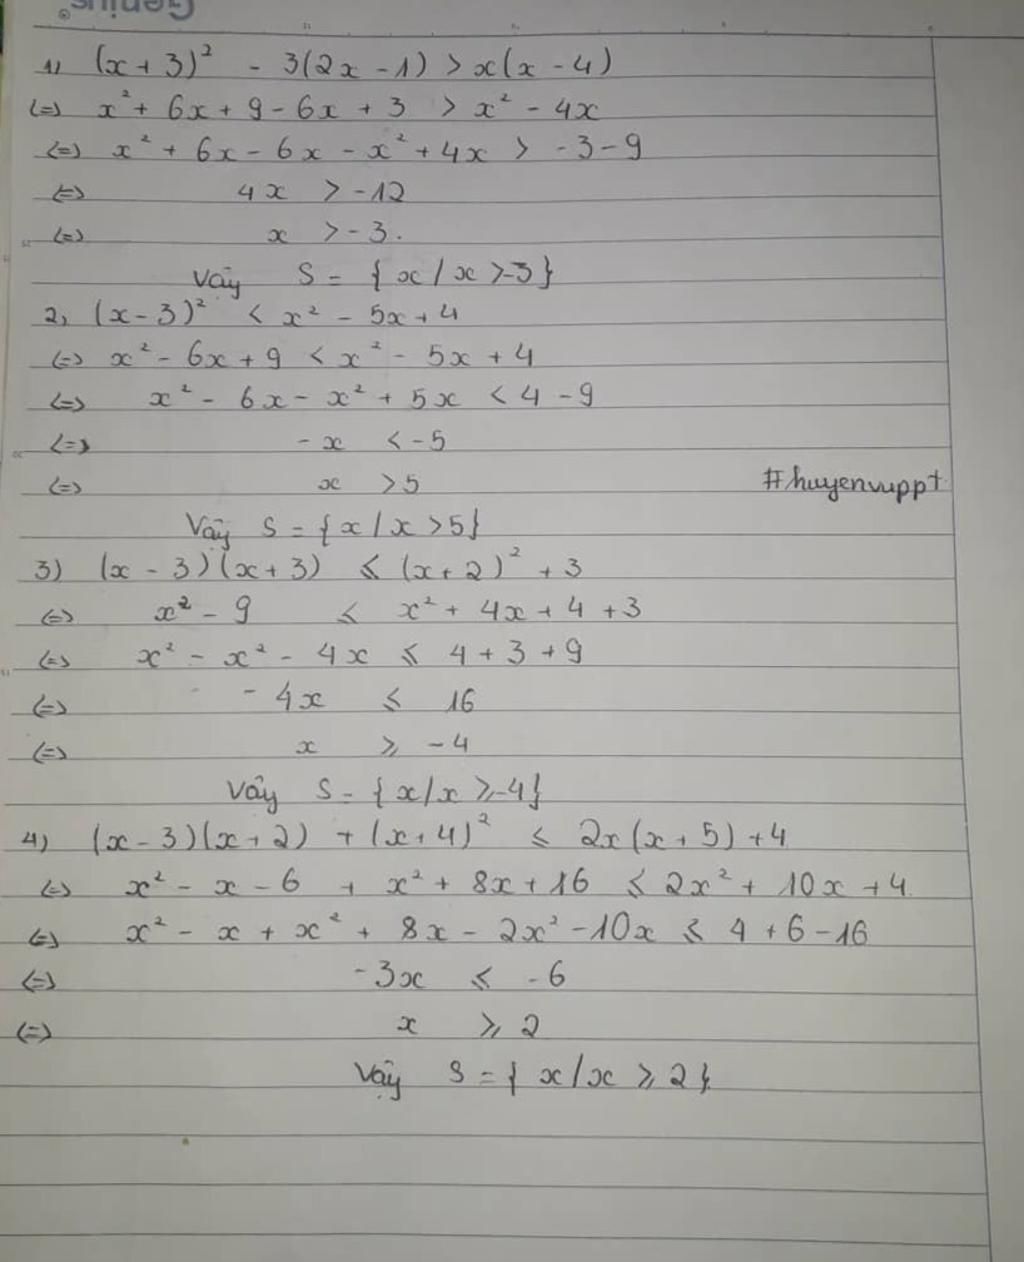 Genius
1) (x + 3)² - 3(2x - 1) > x(x - 4)
(=) x² + 6x + 9 - 6x + 3 > x² - 4x
(=) x² + 6x - 6x - x² + 4x > -3 - 9
(=) 4x > -12
(=) x > -3.
Vậy S = {x / x > -3}
2, (x - 3)² < x² - 5x + 4
(=) x² - 6x + 9 < x² - 5x + 4
(=) x² - 6x - x² + 5x < 4 - 9
(=) - x < - 5
(=) x > 5
#huyenvuppt
Vậy S = {x / x > 5}
3) (x - 3)(x + 3) ≤ (x + 2)² + 3
(=) x² - 9 ≤ x² + 4x + 4 + 3
(=) x² - x² - 4x ≤ 4 + 3 + 9
(=) - 4x ≤ 16
(=) x ≥ - 4
Vậy S = {x / x ≥ -4}
4) (x - 3)(x + 2) + (x + 4)² ≤ 2x(x + 5) + 4
(=) x² - x - 6 + x² + 8x + 16 ≤ 2x² + 10x + 4
(=) x² - x + x² + 8x - 2x² - 10x ≤ 4 + 6 - 16
(=) - 3x ≤ - 6
(=) x ≥ 2
Vậy S = { x / x ≥ 2 }